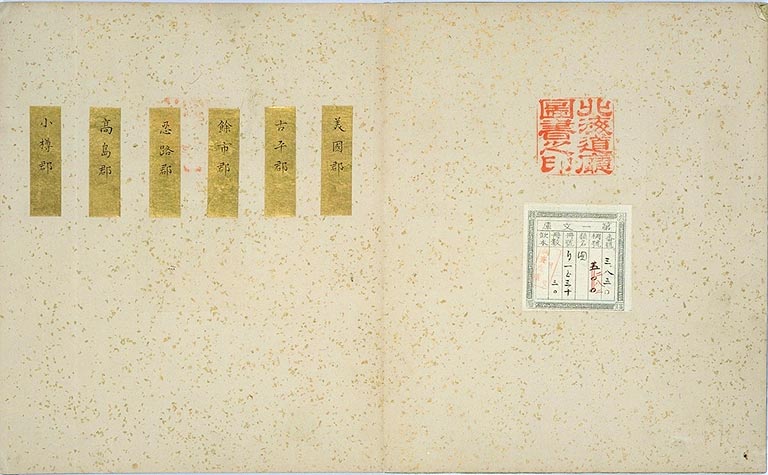 北海道廳
圖書之印
第一文庫
三八三〇
五〇〇
圖
三〇
美國郡
古平郡
餘市郡
忍路郡
高島郡
小樽郡